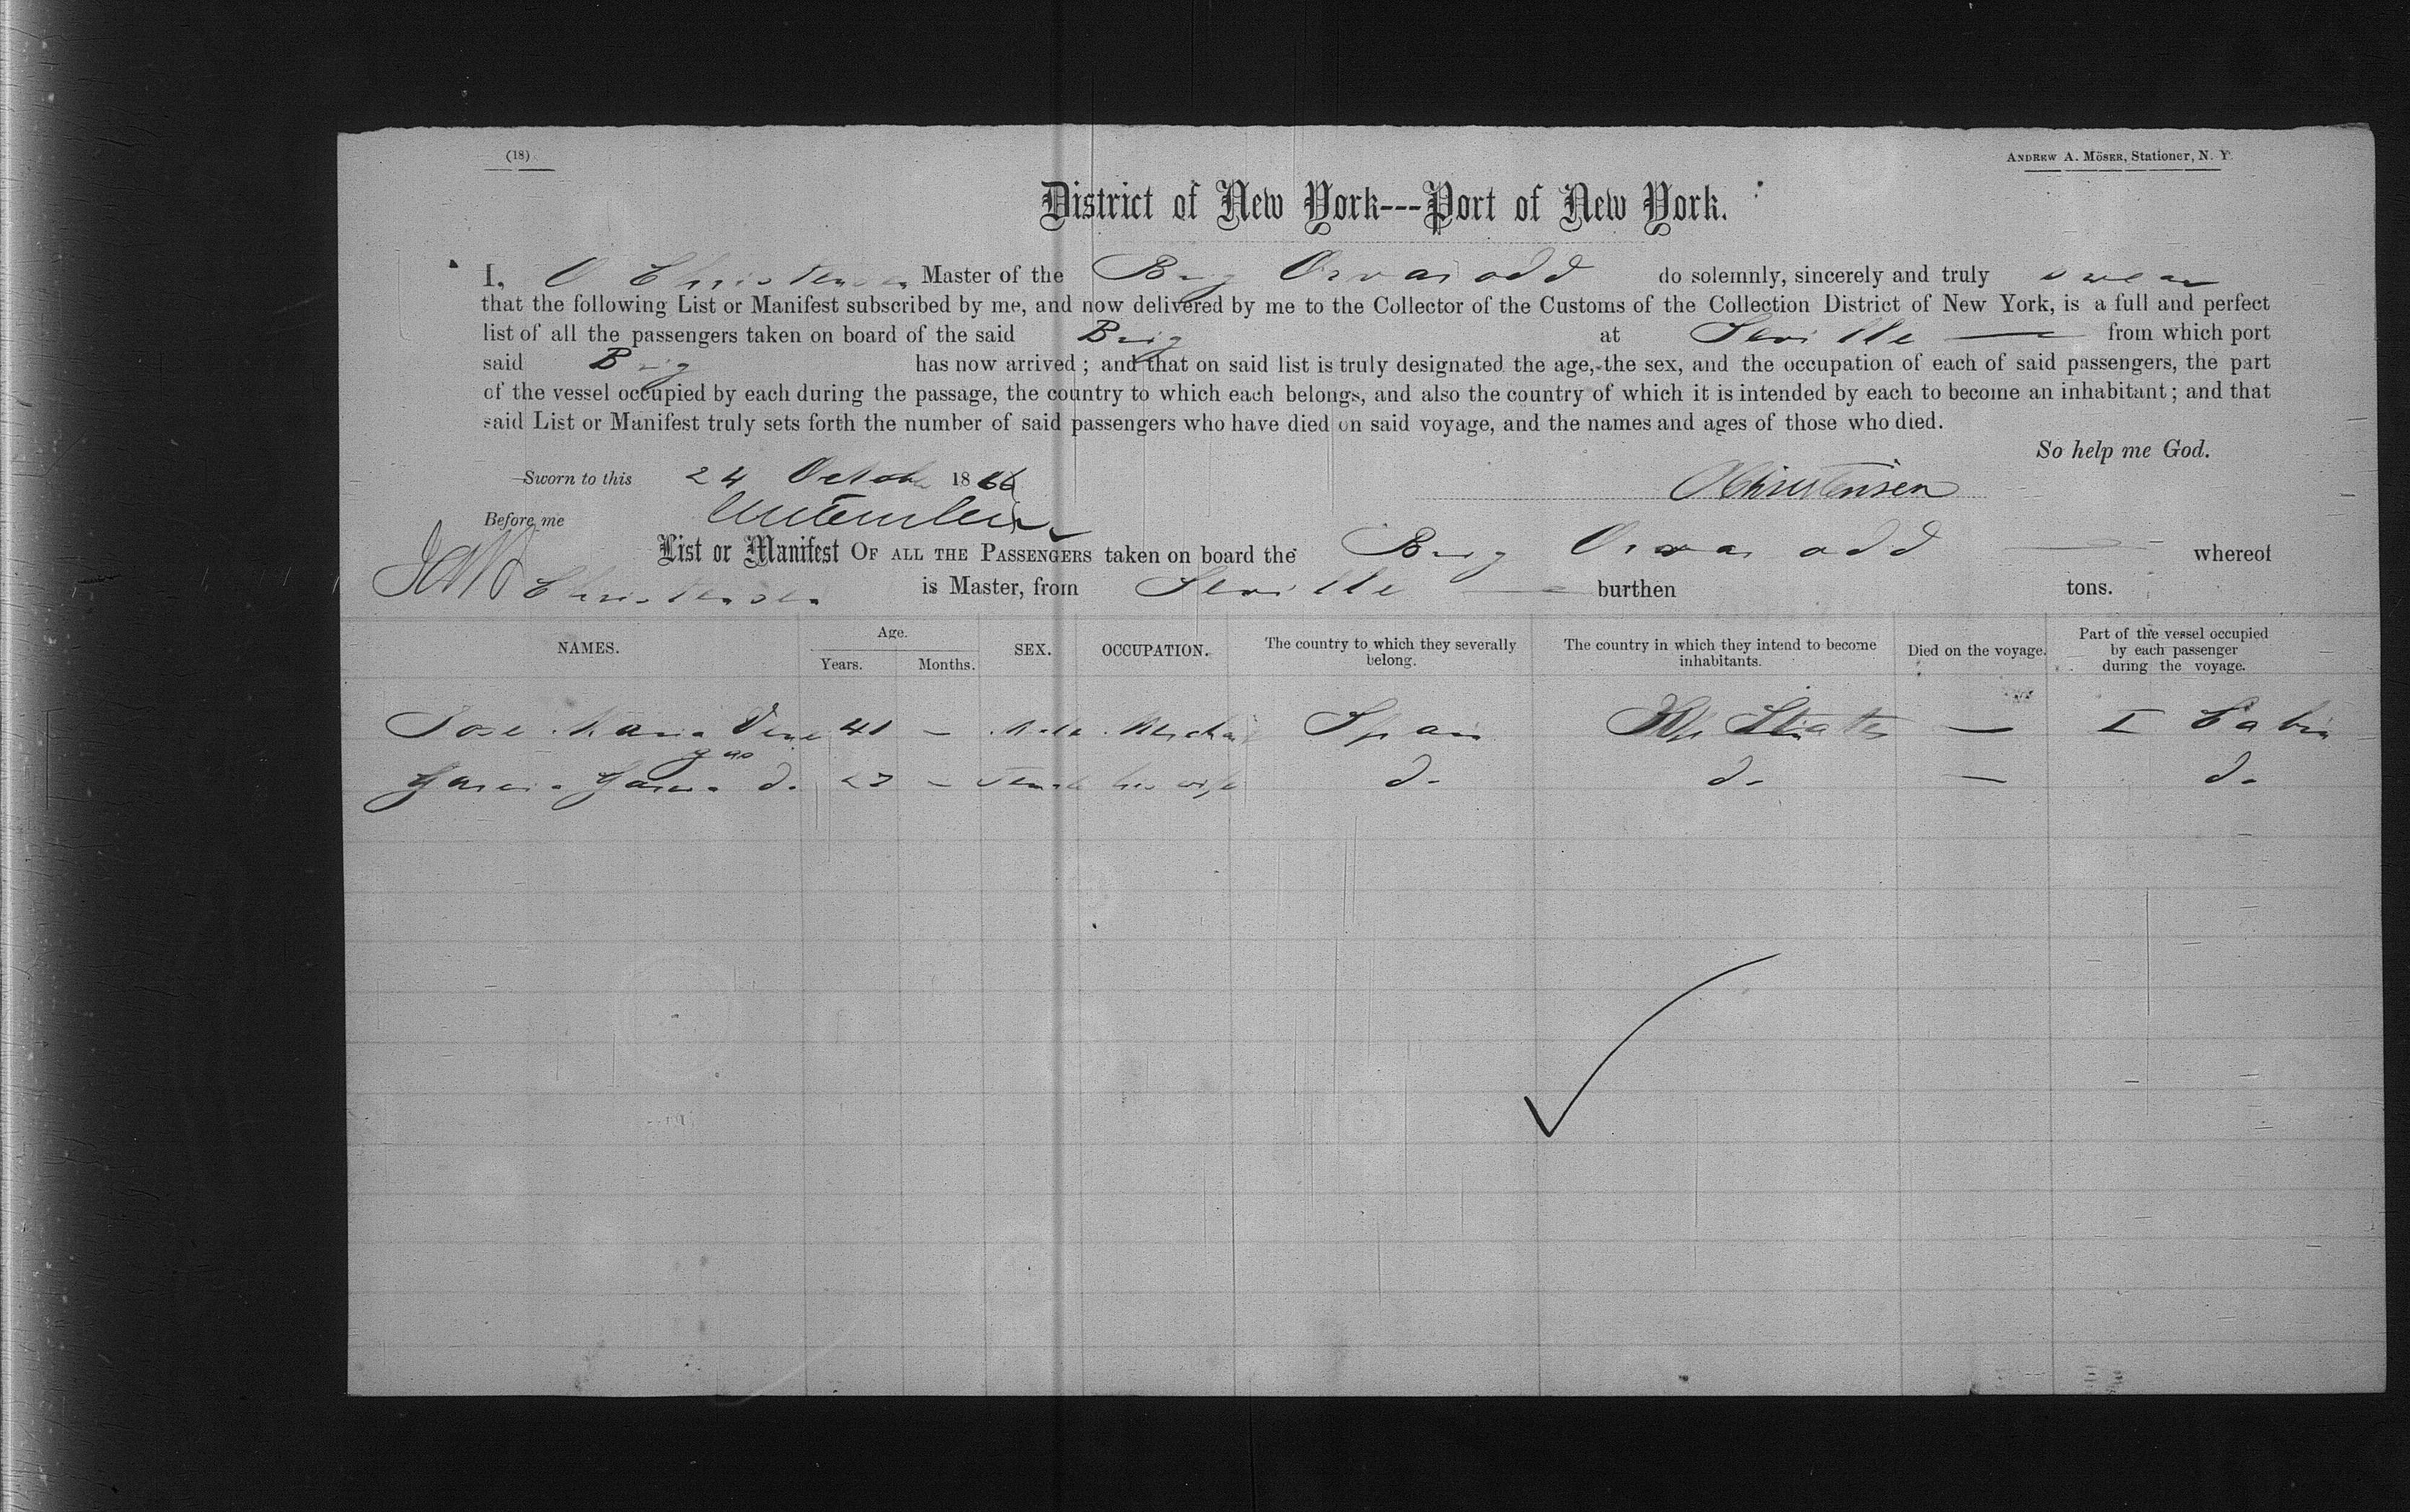 (18)
ANDREW A. MÖSER, Stationer, N. Y.
District of New York---Port of New York.
I, O Christensen Master of the Brig Orvarodd do solemnly, sincerely and truly swear
that the following List or Manifest subscribed by me, and now delivered by me to the Collector of the Customs of the Collection District of New York, is a full and perfect
list of all the passengers taken on board of the said Brig at Seville from which port
said Brig has now arrived ; and that on said list is truly designated the age, the sex, and the occupation of each of said passengers, the part
of the vessel occupied by each during the passage, the country to which each belongs, and also the country of which it is intended by each to become an inhabitant ; and that
said List or Manifest truly sets forth the number of said passengers who have died on said voyage, and the names and ages of those who died.
So help me God.
Sworn to this 24 October 1866
OChristensen
Before me
List or Manifest OF ALL THE PASSENGERS taken on board the Brig Orvarodd whereof
Christensen is Master, from Seville burthen tons.
NAMES. Age. Years. Months. SEX. OCCUPATION. The country to which they severally belong. The country in which they intend to become inhabitants. Died on the voyage. Part of the vessel occupied by each passenger during the voyage.
Jose Maria 41 — Male Merchant Spain States — I Cabin
Garcia d. 23 — Female his wife do do — do